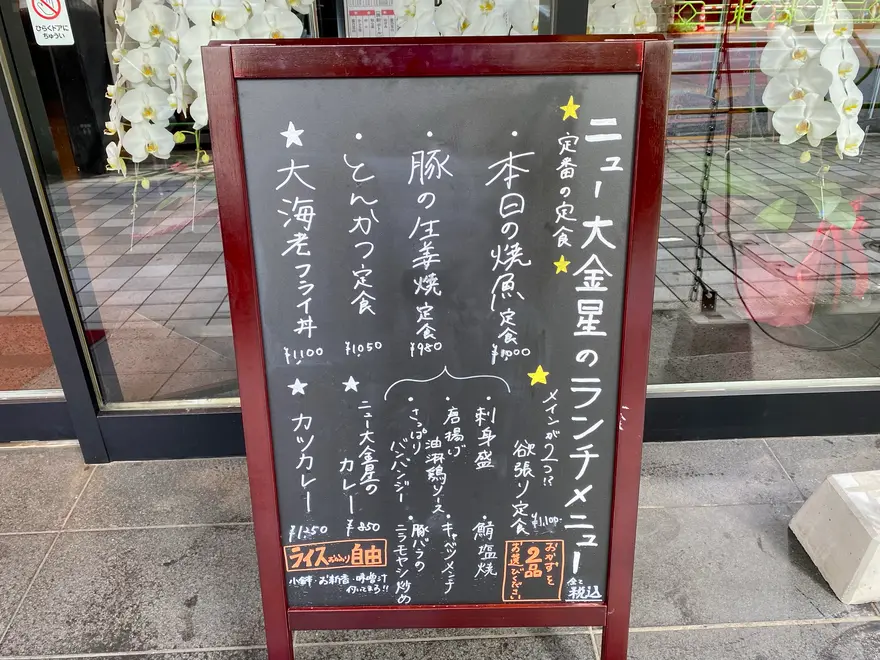 ひらくドアに
ちゅうい
ニュー大金星のランチメニュー
全て税込
★定番の定食★
・本日の焼魚定食 ¥1,000
・豚の生姜焼定食 ¥980
・とんかつ定食 ¥1,050
★大海老フライ丼 ¥1,100
★メインが2つ!?
欲張り定食 ¥1,100-
おかずを
2品
お選びください
・刺身盛
・鯖塩焼
・唐揚げ
油淋鶏ソース
・キャベツメンチ
・さっぱり
バンバンジー
・豚バラの
ニラモヤシ炒め
★ニュー大金星の
カレー ¥850
★カツカレー ¥1,250
ライスおかわり自由
小鉢・お新香・味噌汁
付いてます!!